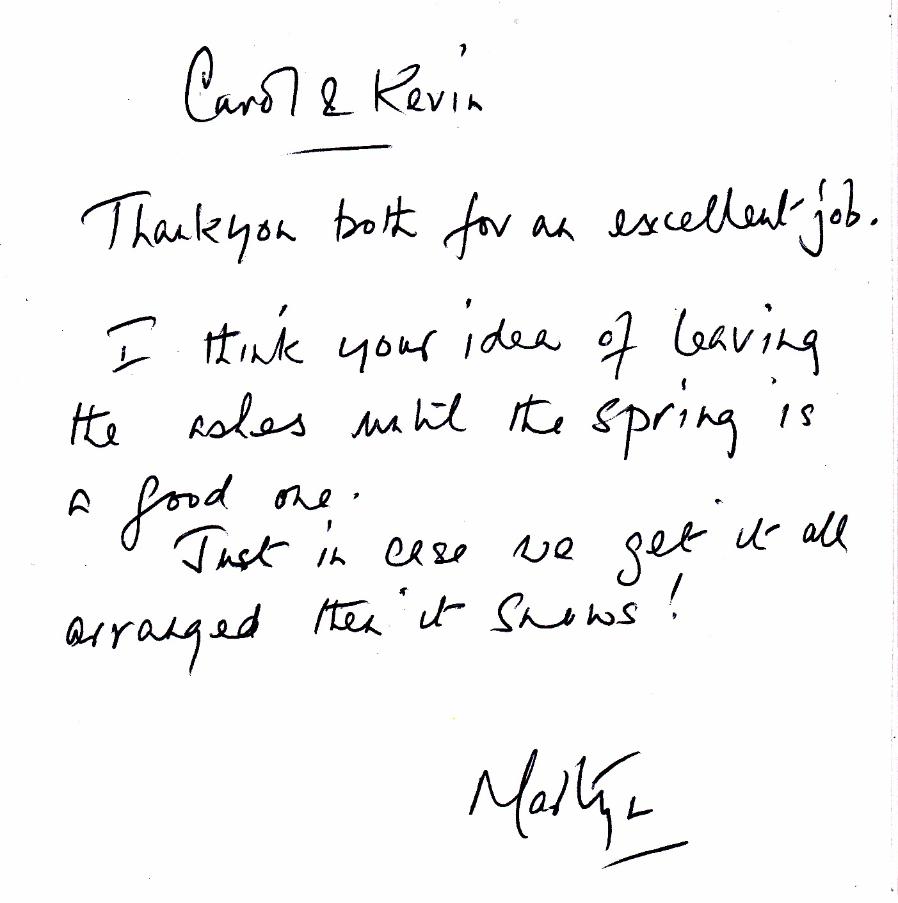 Carol & Kevin
Thankyou both for an excellent job.
I think your idea of leaving
the ashes until the spring is
a good one.
Just in case we get it all
arranged then it snows!
Martyn